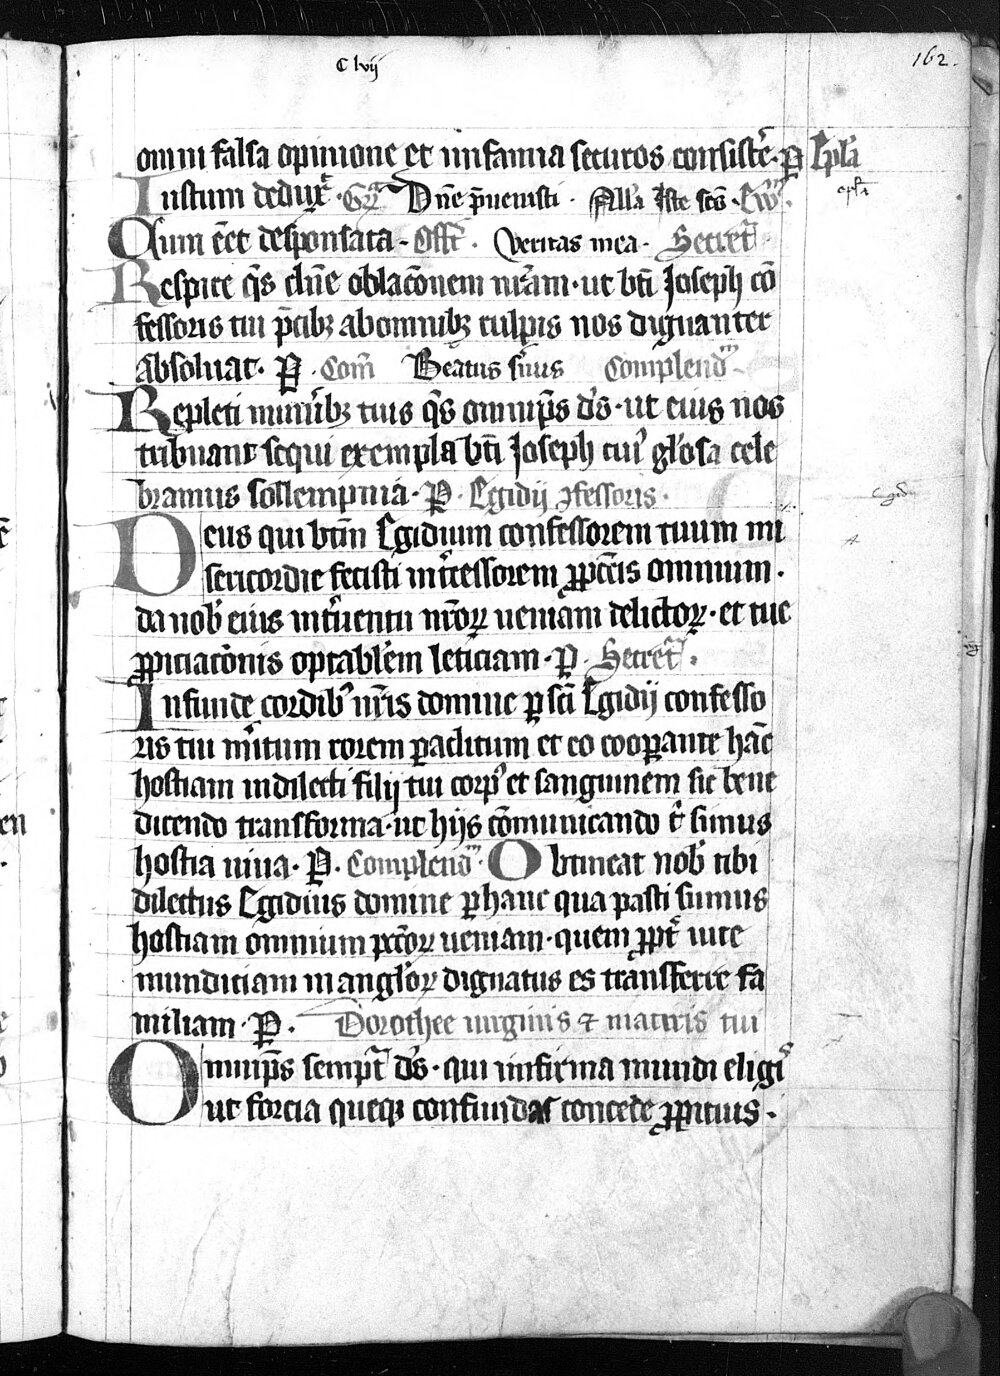 C lvij
162.
omni falsa opinione et infamia securos consist̄e. P Ep̄la
ep̄la
Iustum deduxͭ. Grͣ Dn̄e p̄uenisti. All'a Iste sc̄s. Ewͫ.
Cum eēt desponsata. Offͭ. Veritas mea. Secretͣ
Respice q̄s dn̄e oblac̄onem nr̄am. ut bt̄i Joseph cō
fessoris tui p̄cibꝫ abomnibꝫ culpis nos dignanter
absoluat. P. Com̄ Beatus s̄uus Complendͫ
Repleti mun̄ibꝫ tuis q̄s omnip̄s ds̄. ut eius nos
tribuant sequi exempla bt̄i Joseph cuiꝰ gl'osa cele
bramus sollempnia. P. Egidij ꝯfessoris.
Egid
Deus qui btm̄ Egidium confessorem tuum mi
sericordie fecisti int̄cessorem ꝓpctīs omnium.
da nob' eius int̄uentu nr̄oꝝ ueniam delictoꝝ. et tue
ꝓpiciac̄onis optabl'em leticiam. P. Secretͣ.
Infunde cordibꝰ nr̄is domine ꝑ sc̄i Egidij confesso
ris tui m̄itum rorem ꝑaclitum et eo cooꝑante hāc
hostiam indilecti filij tui corpꝰ et sanguinem sic bene
dicendo transforma. ut hijs cōmunicando t' simus
hostia uiua. P. Complendͫ. Obtineat nob' tibi
dilectus Egidius domine ꝑ hanc qua pasti sumus
hostiam omnium pctōꝝ ueniam. quem ꝓpt' uite
mundiciam in angl'oꝝ dignatus es transferre fa
miliam. P. Dorothee uirginis ⁊ matris tui
Omnip̄s sempt̄ ds̄. qui infirma mundi eligiˢ
ut forcia queqꝫ confundas concede ꝓpitius.